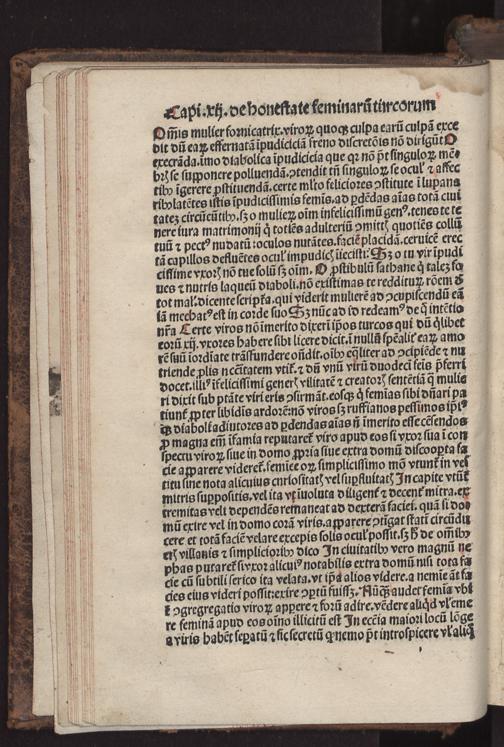 Capi .xij. de honestate feminarũ turcorum
Oĩs mulier fornicatrix. viroꝝ quoqꝫ culpa earũ culpã exce
dit dũ eaꝝ effernatã ĩpudiciciã freno discretõis nõ dirigũt O
execrãda. ĩmo diabolica ĩpudicicia que
se supponere polluendã. ꝯtendit tñ singuloꝝ se ocul᷒ ⁊ affec
ĩgerere ꝓstituendã. certe feliciores ꝯstitute ĩ lupana
latẽtes istis ĩpudicissimis femĩs. ad ꝑdẽdas aĩas totã ciui
tatez circũeũtibꝫ. sꝫ o mulieꝝ oĩm infelicissimũ genꝰ. tenes te te
nere iura matrimonij ꝗ totiẽs adulteriũ quotiẽs collũ
tuũ ⁊ pectꝰ nudatũ: oculos nutãtes. faciẽ placidã. ceruicẽ erec
tã capillos defluẽtes ocul᷒ impudic᷒ Sꝫ o tu vir ĩpudi
cissime vxor᷒ nõ tue solũ sꝫ oĩm. O ꝓstibulũ sathane ꝗ talez fo
ues ⁊ nutris laqueũ diaboli. nõ existimas te redditurꝰ rõem ð
tot mal᷒. dicente scripťa. qui viderit mulierẽ ad ꝯcupiscendũ eã
iã mechatꝰ est in corde suo Sꝫ nũc ad id redeamꝰ de ꝗ intẽtio
nr̃a Certe viros nõ ĩmerito dixeri ĩpos turcos qui dũ ꝗlibet
eorũ xij. vxores habere sibi licere dicit. ĩ nullã sp̃ealit᷒ eaꝝ amo
rẽ suũ iordĩate trãsfundere oñdit. oĩbꝫ eq̃liter ad ꝯcipiẽde ⁊ nu
triende ꝓlis ncẽitatem vtit᷒. ⁊ dũ vnũ virũ duodecĩ feĩs p̃ferri
docet. illiꝰ ĩfelicissimi gener᷒ vilitatẽ ⁊ creator᷒ sentẽtiã ꝗ mulie
ri dixit sub ptãte viri eris ꝯfirmãt. eosqꝫ ꝗ femĩas sibi dñari pa
tiunť ꝓpter libidĩs ardorẽ: nõ viros sꝫ ruffianos pessimos ĩp̃i
diaboli adiutores ad ꝑdendas aĩas ñ ĩmerito esse cẽsendos
ꝓ magna eĩm ĩfamia reputareť viro apud eos si vxor sua ĩ con
spectu viroꝝ siue in domo ꝓpria siue extra domũ discoopta fa
cie apparere videreť. femĩe eoꝝ simplicissimo mõ vtunť in ves
titu sine nota alicuius curiositat᷒ vel suꝑfluitat᷒ In capite vtũť
mitris suppositis. vel ita ĩuoluta diligenť ⁊ decenť mitra. ex
tremitas veli dependẽs remaneat ad dexterã faciei. quã si do
mũ exire vel in domo corã viris. apparere ꝯtĩgat statĩ circũdu
cere et totã faciẽ velare exceptis solis ocul᷒ possit. sꝫ de oĩbꝫ
villanis ⁊ simplicioribꝫ dico In ciuitatibꝫ vero magnũ ne
phas putareť si vxor alicuiꝰ notabilis extra domũ nisi tota fa
cie cũ subtili serico ita velata. vt ip̃a alios videre. a nemĩe ãt fa
cies eius videri possit: exire ꝓptũ fuissꝫ. Nũcꝗ᷒ audet femĩa vbi
ẽ ꝯgregatio viroꝝ apꝑere ⁊ forũ adire. vẽdere aliꝗd vl᷒ eme
re feminã apud eos oĩno illicitũ est In ecc̃ia maiori locũ lõge
a viris habẽt seꝑatũ ⁊ sic secretũ ꝗ nemo p̃t introspicere vl᷒ aliꝗ